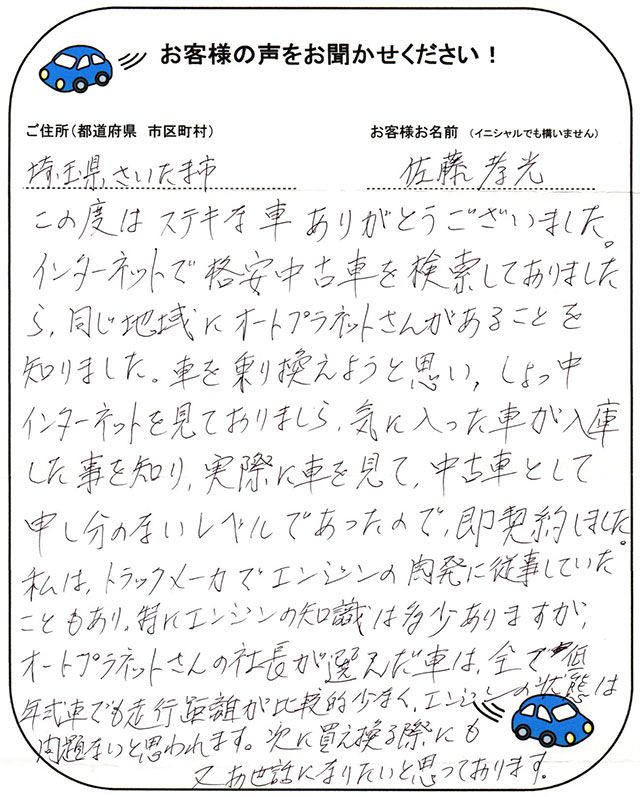 お客様の声をお聞かせください！
ご住所（都道府県 市区町村） お客様お名前 （イニシャルでも構いません）
埼玉県さいたま市 佐藤孝光
この度はステキな車ありがとうございました。
インターネットで格安中古車を検索しておりました
ら、同じ地域にオートプラネットさんがあることを
知りました。車を乗り換えようと思い、しょっ中
インターネットを見ておりましら、気に入った車が入庫
した事を知り、実際に車を見て、中古車として
申し分のないレベルであったので、即契約しました。
私は、トラックメーカでエンジンの開発に従事していた
こともあり、特にエンジンの知識は多少ありますが、
オートプラネットさんの社長が選んだ車は、全て低
年式車でも走行距離が比較的少なく、エンジンの状態は
問題ないと思われます。次に買え換る際にも
又お世話になりたいと思っております。